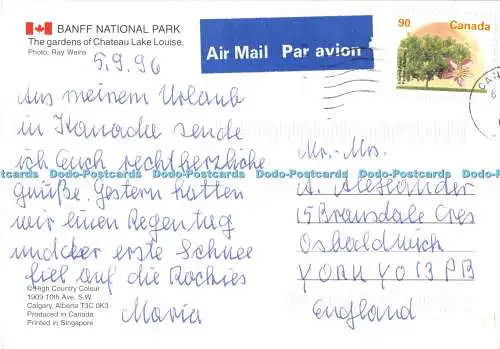 BANFF NATIONAL PARK
The gardens of Chateau Lake Louise.
Photo: Ray Weins
5.9.96
Aus meinem Urlaub
in Kanada sende
ich Euch recht herzliche
Grüße. Gestern hatten
wir einen Regentag
und der erste Schnee
fiel auf die Rockies
Maria
© High Country Colour
1909 10th Ave., S.W.
Calgary, Alberta T3C 0K3
Produced in Canada
Printed in Singapore
Air Mail Par avion
90 Canada
Mr. - Mrs.
A. Alexander
15 Bransdale Cres
Osbaldwich
YORK YO13PB
England
Dodo-Postcards Dodo-Postcards Dodo-Postcards Dodo-Postcards